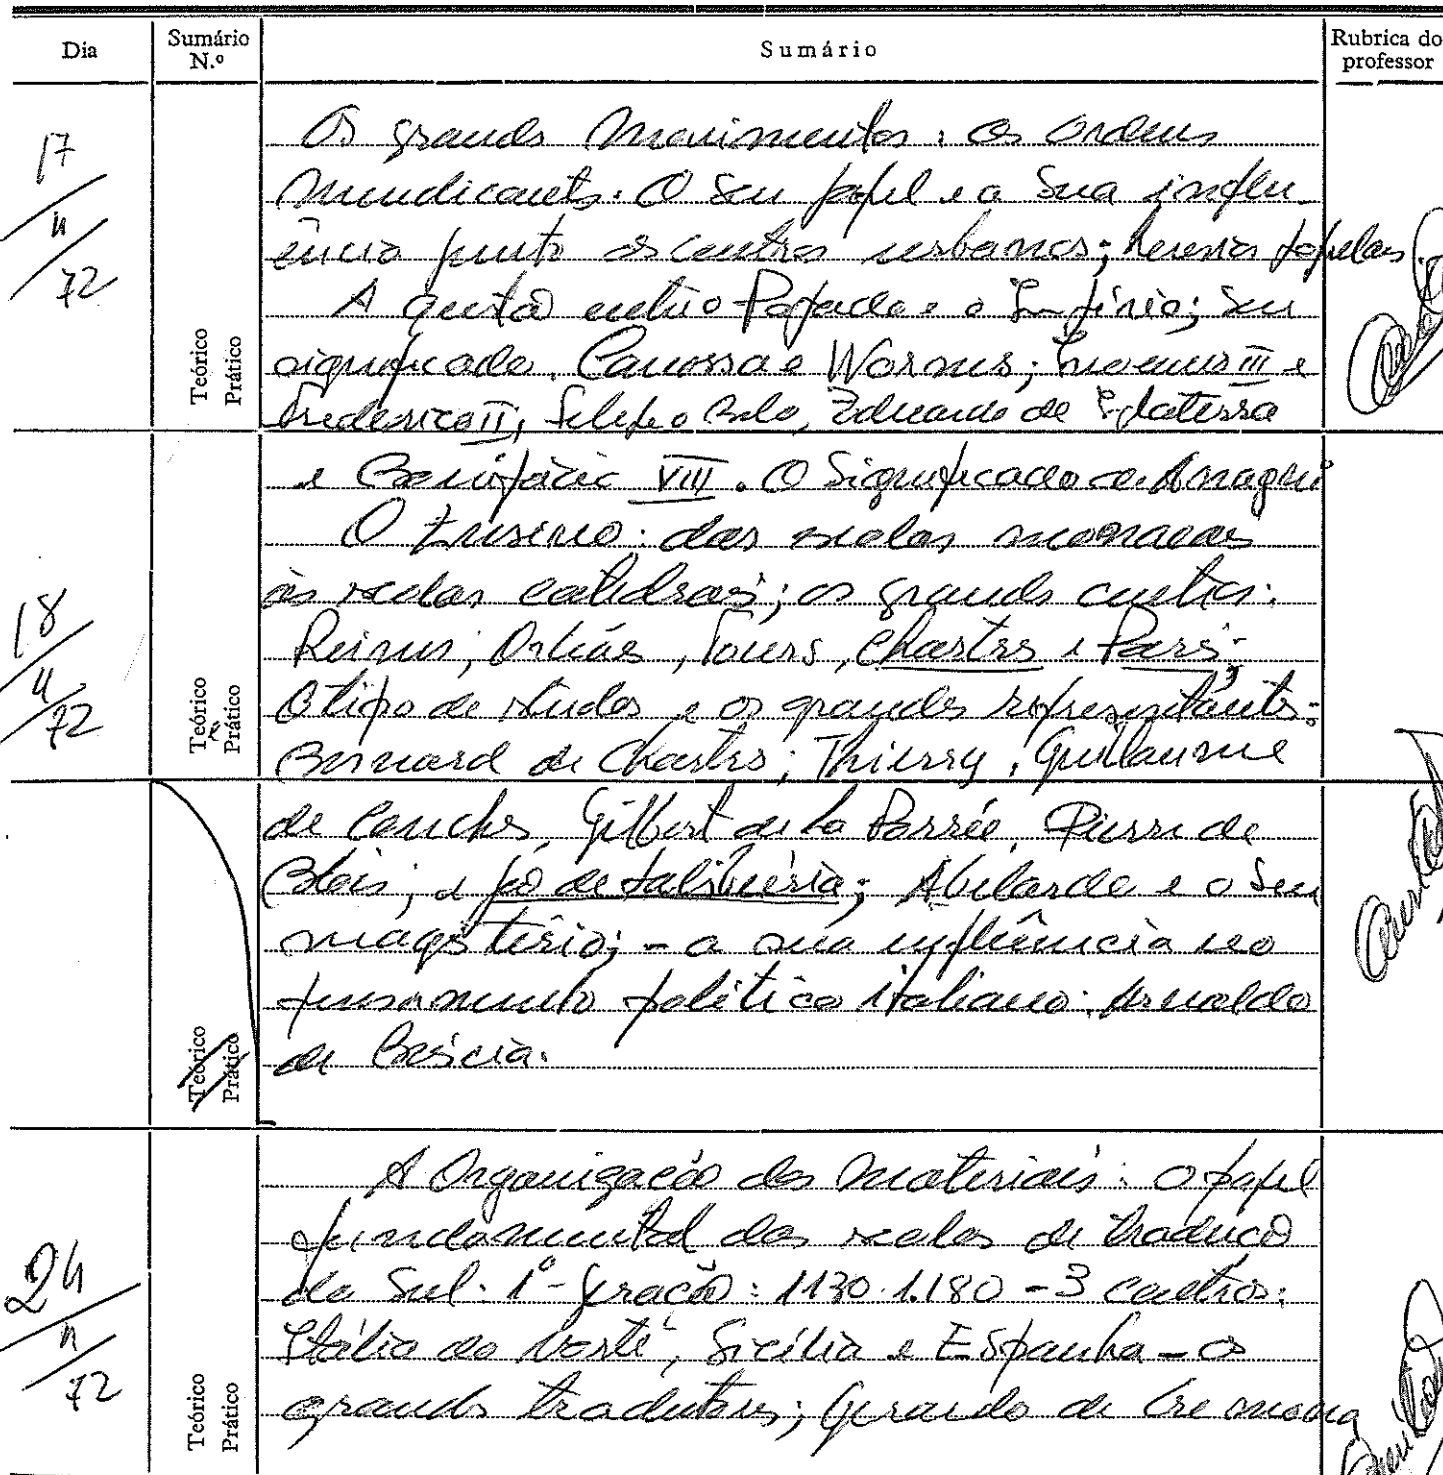 Dia
Sumário N.º
Sumário
Rubrica do professor
17/4/72
Teórico
Prático
Os grandes movimentos: as Ordens
Mendicantes. O seu papel e a sua influ-
ência junto os centros urbanos; heresias populares.
A questão entre o Papado e o Império; seu
significado. Canossa e Worms; Inocencio III e
Frederico II; Filipe o Belo, Eduardo de Inglaterra
18/4/72
Teórico
Prático
e Bonifácio VIII. O Significado de Anagni
O Ensino: das escolas monacais
às escolas catedrais; os grandes centros:
Reims, Orleães, Tours, Chartres e Paris;
O tipo de estudos e os grandes representantes:
Bernard de Chartres; Thierry, Guillaume
Teórico
Prático
de Conches, Gilbert de La Porrée, Pierre de
Blois, e Jº de Salisbúria; Abelardo e o seu
magistério; - a sua influência no
pensamento político italiano: Arnaldo
de Bréscia.
24/4/72
Teórico
Prático
A Organização dos Materiais: o papel
fundamental das escolas de tradução
do Sul: 1ª - geração: 1130.1.180 - 3 centros:
Itália do Norte, Sicília e Espanha - os
grandes tradutores; Gerardo de Cremona